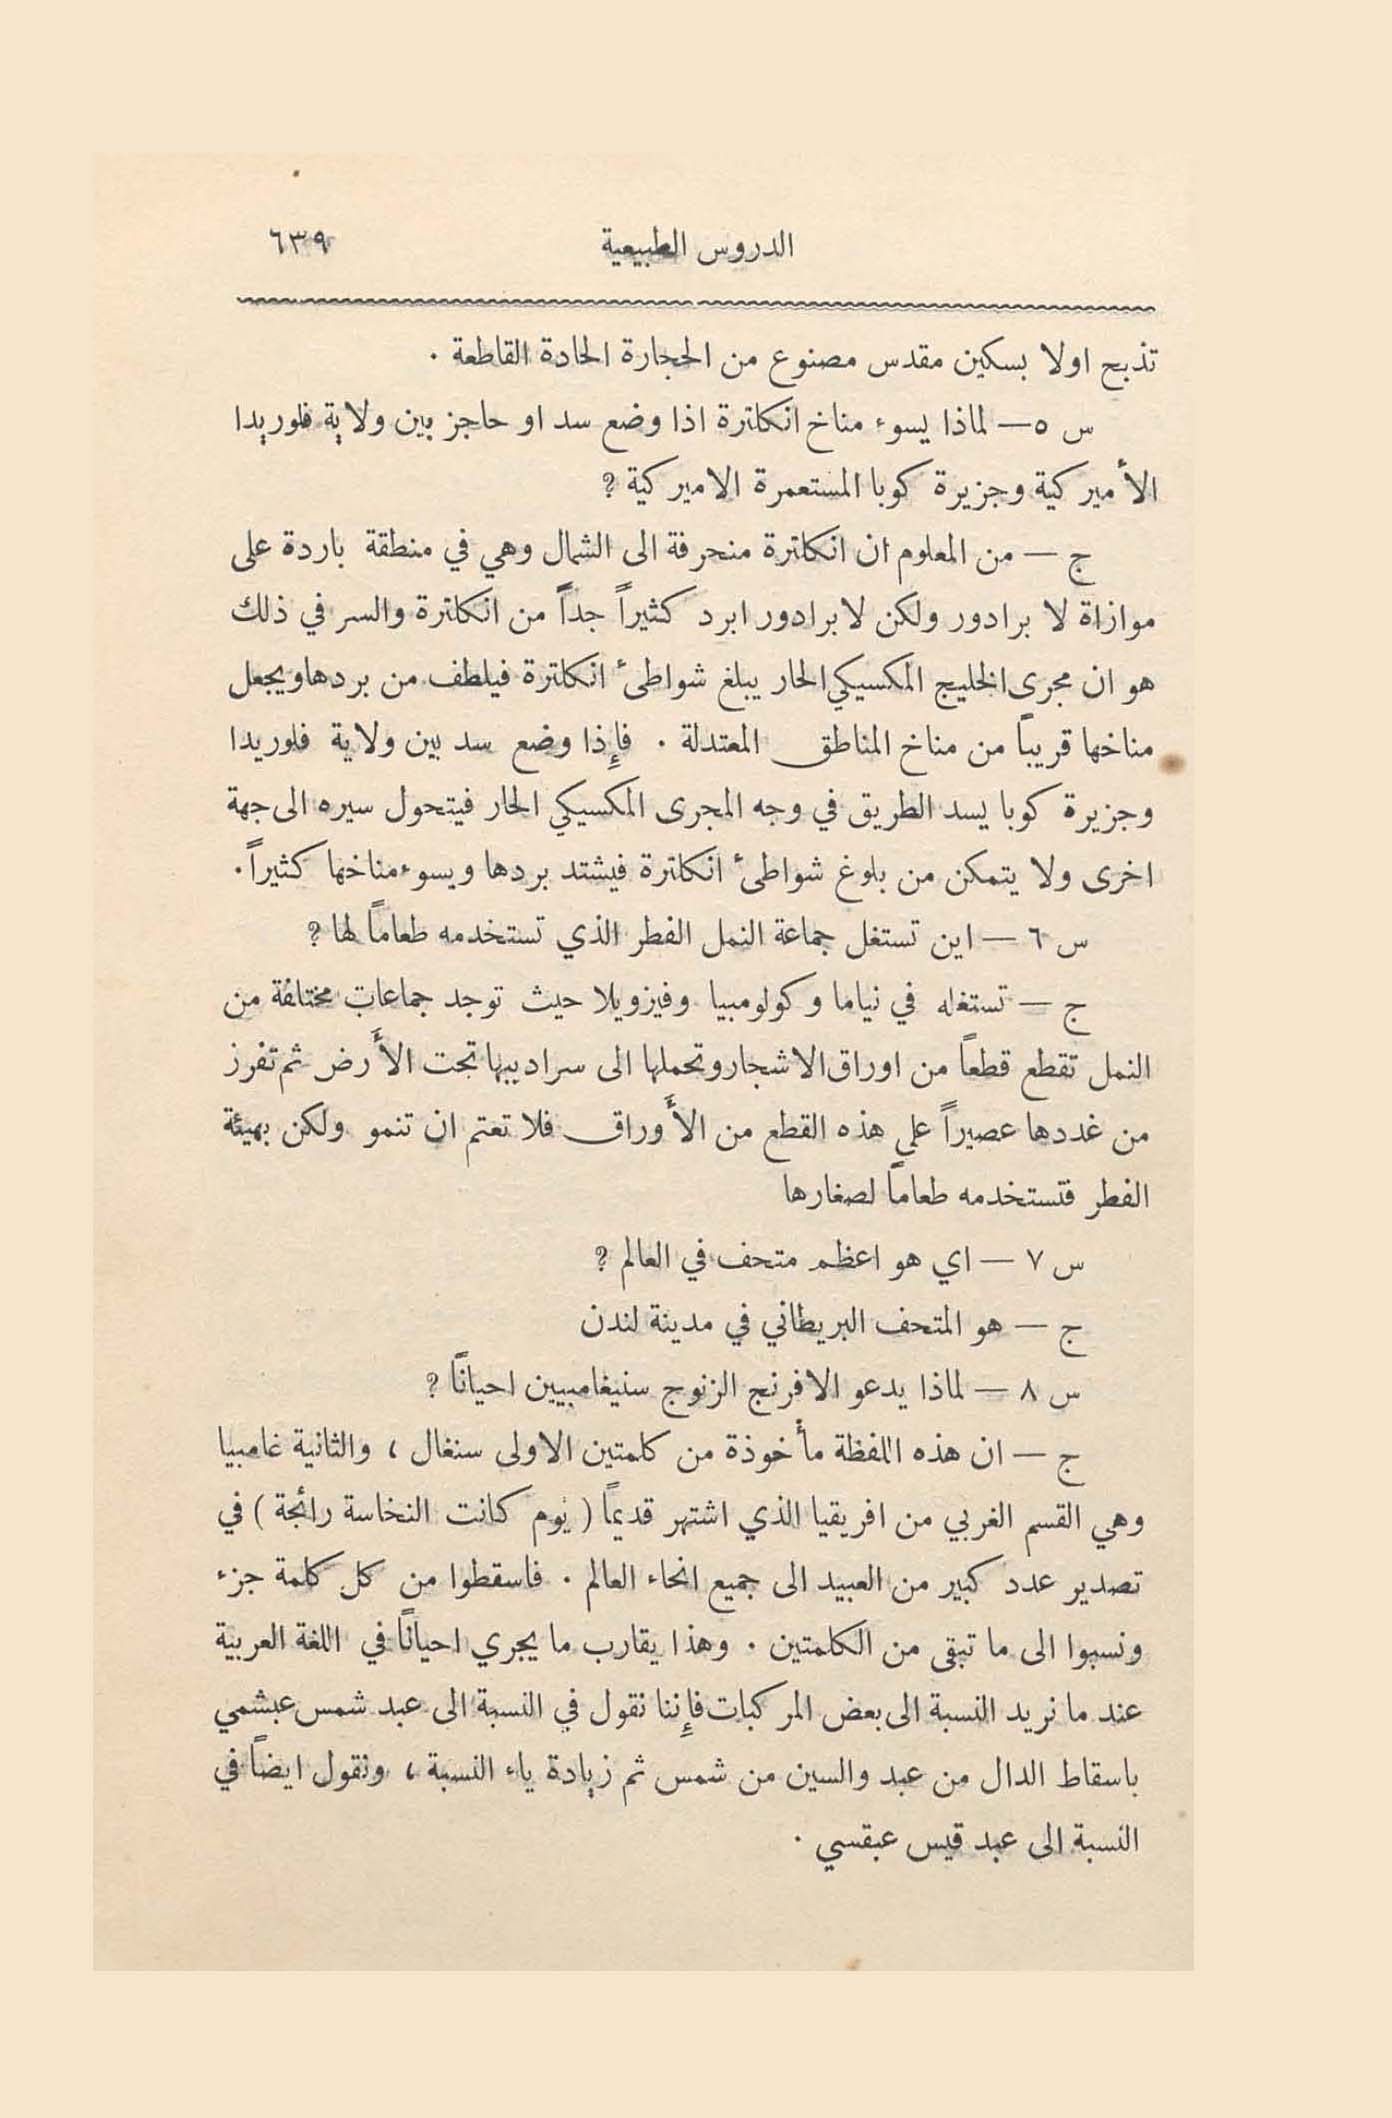 الدروس الطبيعية ٦٣٩
تذبح اولا بسكين مقدس مصنوع من الحجارة الحادة القاطعة .
س ٥ — لماذا يسوء مناخ انكلترة اذا وضع سد او حاجز بين ولاية فلوريدا
الأميركية وجزيرة كوبا المستعمرة الاميركية ؟
ج — من المعلوم ان انكلترة منحرفة الى الشمال وهي في منطقة باردة على
موازاة لا برادور ولكن لابرادور ابرد كثيراً جداً من انكلترة والسر في ذلك
هو ان مجرى الخليج المكسيكي الحار يبلغ شواطئ انكلترة فيلطف من بردها ويجعل
مناخها قريباً من مناخ المناطق المعتدلة . فإذا وضع سد بين ولاية فلوريدا
وجزيرة كوبا يسد الطريق في وجه المجرى المكسيكي الحار فيتحول سيره الى جهة
اخرى ولا يتمكن من بلوغ شواطئ انكلترة فيشتد بردها ويسوء مناخها كثيراً .
س ٦ — اين تستغل جماعة النمل الفطر الذي تستخدمه طعاماً لها ؟
ج — تستغله في نياما وكولومبيا وفيزويلا حيث توجد جماعات مختلفة من
النمل تقطع قطعاً من اوراق الاشجار وتحملها الى سراديبها تحت الأرض ثم تفرز
من غددها عصيراً على هذه القطع من الأوراق فلا تعتم ان تنمو ولكن بهيئة
الفطر فتستخدمه طعاماً لصغارها
س ٧ — اي هو اعظم متحف في العالم ؟
ج — هو المتحف البريطاني في مدينة لندن
س ٨ — لماذا يدعو الافرنج الزنوج سنيغامبيين احياناً ؟
ج — ان هذه اللفظة مأخوذة من كلمتين الاولى سنغال ، والثانية غامبيا
وهي القسم الغربي من افريقيا الذي اشتهر قديماً ( يوم كانت النخاسة رائجة ) في
تصدير عدد كبير من العبيد الى جميع انحاء العالم . فاسقطوا من كل كلمة جزء
ونسبوا الى ما تبقى من الكلمتين . وهذا يقارب ما يجري احياناً في اللغة العربية
عند ما نريد النسبة الى بعض المركبات فإننا نقول في النسبة الى عبد شمس عبشمي
باسقاط الدال من عبد والسين من شمس ثم زيادة ياء النسبة ، ونقول ايضاً في
النسبة الى عبد قيس عبقسي .